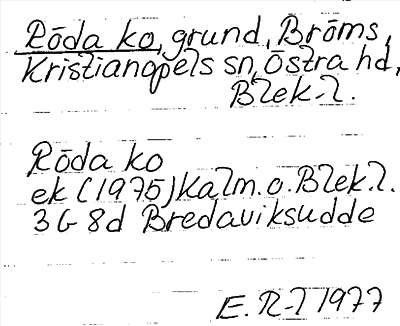 Röda ko, grund, Bröms,
Kristianopels sn, Östra hd,
Blek. l.
Röda ko
ek (1975) Kalm. o. Blek. l.
3 G 8d Bredaviksudde
E. R-l 1977